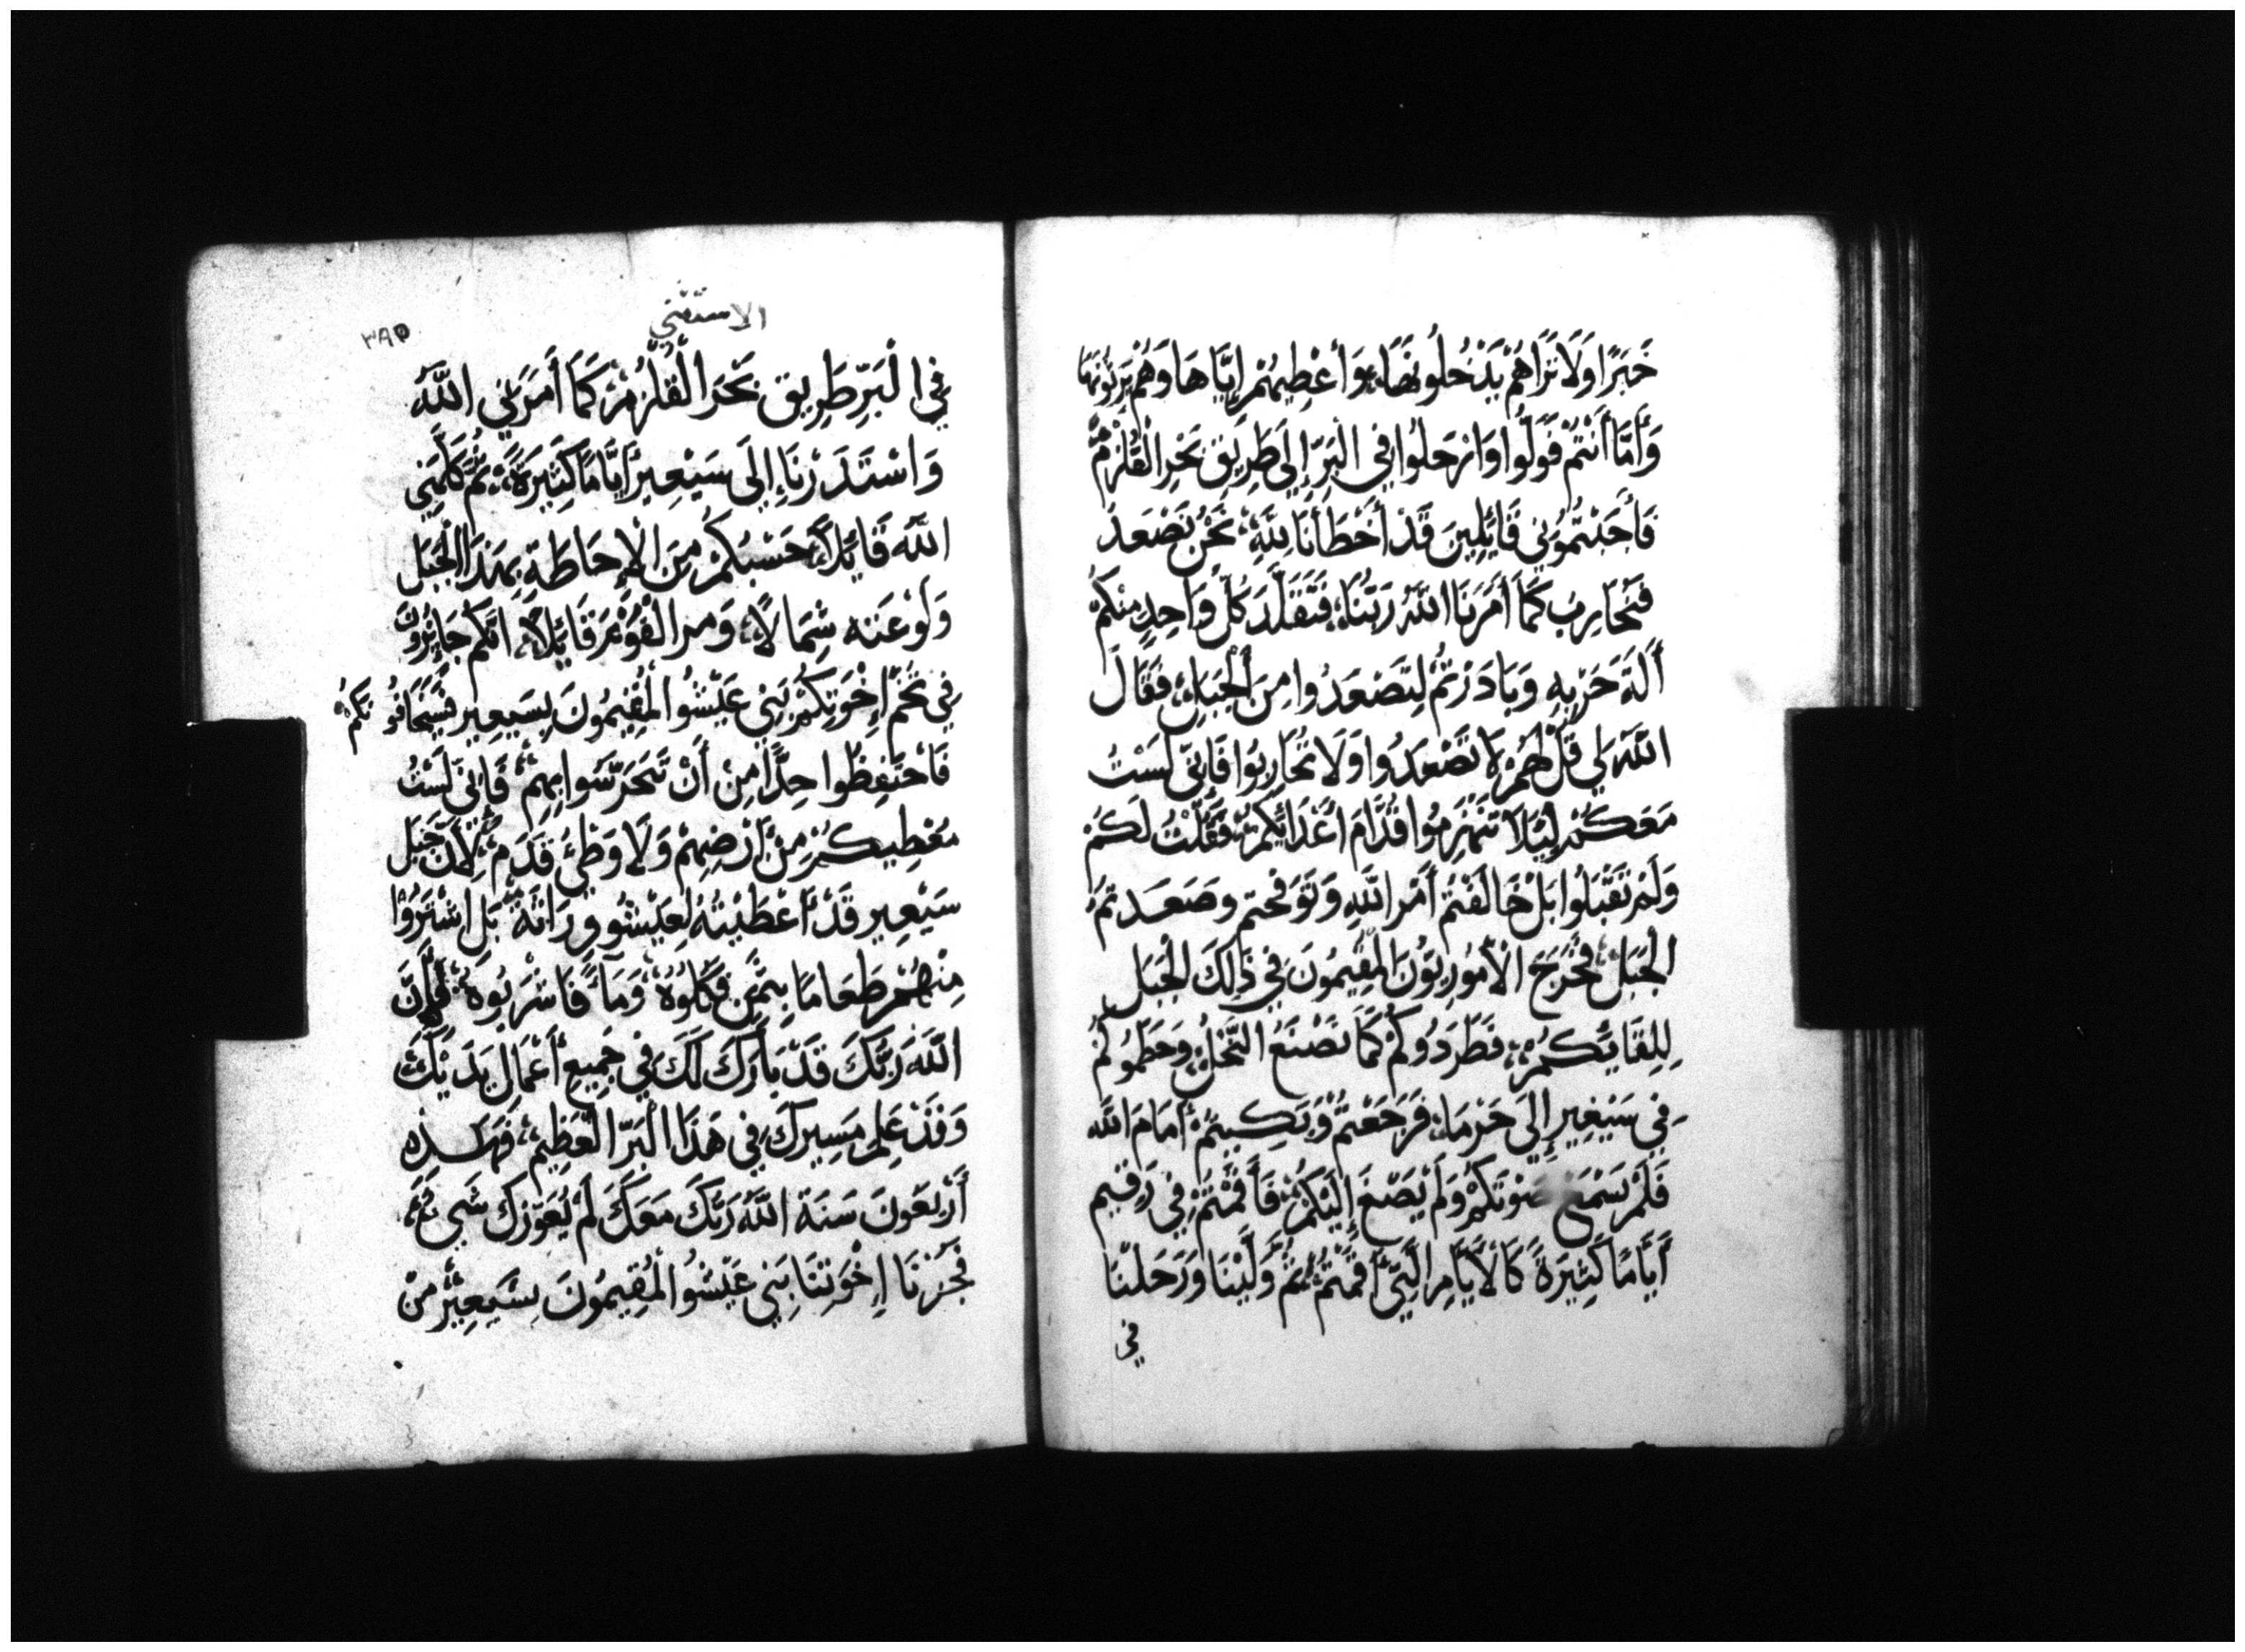 خَبَرًا وَلَا نَرَاهُمْ يَدْخُلُونَهَا، وَأُعْطِيهُمْ إِيَّاهَا وَهُمْ يَرِثُونَهَا
وَأَمَّا أَنْتُمْ فَوَلُّوا وَارْحَلُوا فِي الْبَرِّ إِلَى طَرِيقِ بَحْرِ الْقُلْزُمِ
فَأَجَبْتُمُونِي قَائِلِينَ قَدْ أَخْطَأْنَا لِلَّهِ، نَحْنُ نَصْعَدُ
فَنُحَارِبُ كَمَا أَمَرَنَا اللَّهُ رَبُّنَا، فَتَقَلَّدَ كُلُّ وَاحِدٍ مِنْكُمْ
أَلَةَ حَرْبِهِ وَبَادَرْتُمْ لِتَصْعَدُوا مِنَ الْجَبَلِ، فَقَالَ
اللَّهُ لِي قُلْ لَهُمْ لَا تَصْعَدُوا وَلَا تُحَارِبُوا فَإِنِّي لَسْتُ
مَعَكُمْ لِيَلَا تَنْهَزِمُوا قُدَّامَ أَعْدَائِكُمْ، فَقُلْتُ لَكُمْ
وَلَمْ تَقْبَلُوا بَلْ خَالَفْتُمْ أَمْرَ اللَّهِ وَتَوَقَّحتم وصَعَدتُمُ
الْجَبَلَ، فَخَرَجَ الْأَمُورِيُّونَ الْمُقِيمُونَ فِي ذَلِكَ الْجَبَلِ
لِلِقَائِكُمْ، فَطَرَدُوكُمْ كَمَا تَصْنَعُ النَّحْلُ، وَحَطَّمُوكُمْ
فِي سَيْعِيرِ إِلَى حَرْمَا، فَرَجَعْتُمْ وَبَكِيتُمْ أَمَامَ اللَّه
فَلَمْ يَسْمَعْ صَوْتَكُمْ وَلَمْ يَصْغَ إِلَيْكُمْ، فَأَقَمْتُمْ فِي رَقِيمِ
أَيَّامًا كَثِيرَةً كَالْأَيَّامِ الَّتِي أَقَمْتُمْ، ثُمَّ وَلَّيْنَا وَرَحَلْنَا
في
الاستثني
٣٨٥
فِي الْبَرِّ طَرِيق بَحْرَ الْقُلْزُمْ كَمَا أَمَرَنِي اللَّهُ
وَاسْتَدَرْنَا إِلَى سَيْعِيرَ أَيَّامًا كَثِيرَةً، ثُمَّ كَلَّمَنِي
اللَّهُ قَائِلًا، حَسْبُكُمْ مِنَ الْإِحَاطَةِ بِهَذَا الْجَبَلِ
وَلَوْ عَنه شِمَالًا، وَمر الْقَوْمَ قَائِلًا، انَّكم جَائِزُونَ
فِي تُخْمِ إِخْوَتِكُمْ بَنِي عَيْشُو الْمُقِيمُونَ بِسَيعِير فَسَيَخَافُونَكُمْ
فَاحْتَفِظُوا جِدًّا مِنْ أَنْ تَتَحَرَّشَوا بِهِمْ، فَإِنِّي لَسْتُ
مُعْطِيكُمْ مِنْ أَرْضِهِمْ وَلَا وَطْئَ قَدَمٍ، لِأَنَّ جَبَلَ
سَيْعِير قَدْ أَعْطَيْتُهُ لِعَيْشُو وِرَاثَةً، بَلِ اشْتَرَوْا
مِنْهُمْ طَعَامًا بِثَمَنٍ فَكُلُوهُ، وَمَاءً فَاشْرَبُوهُ، فَإِنَّ
اللَّهَ رَبَّكَ قَدْ بَارَكَ لَكَ فِي جَمِيعِ أَعْمَالِ يَدَيْكَ
وَقَدْ عَلِمَ مَسِيرَكَ فِي هَذَا الْبَرِّ الْعَظِيمِ، فَهَذِه
أَرْبَعُونَ سَنَة اللَّهُ رَبُّكَ مَعَكَ لَمْ يُعَوِّزكَ شَيءٌ،
فَجُزْنَا إِخْوَتَنَا بَنِي عَيْشُو الْمُقِيمُونَ بِسَيعِيرْ مِنْ